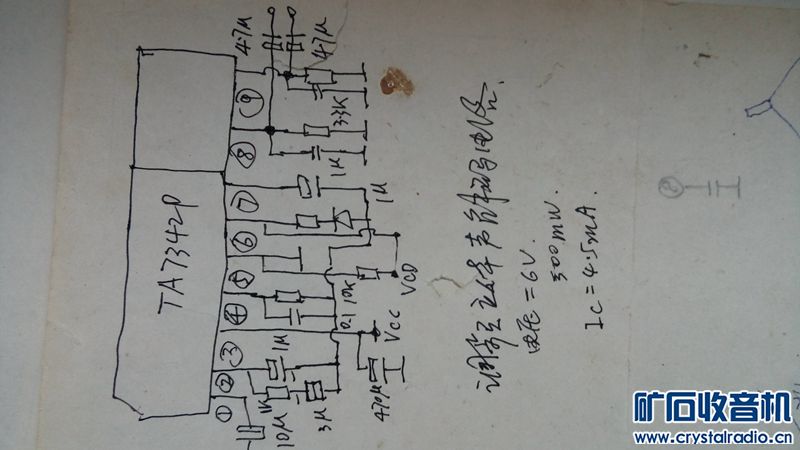 TA7342P
①
②
③
④
⑤
⑥
⑦
⑧
⑨
4.7μ
47μ
3.3K
1μ
1μ
10K
0.1
VCD
Vcc
1μ
1K
10μ
3μ
470μ
调频立体声解码电路.
电压=6V.
300mW.
Ic=4.5mA.
矿石收音机
www.crystalradio.cn